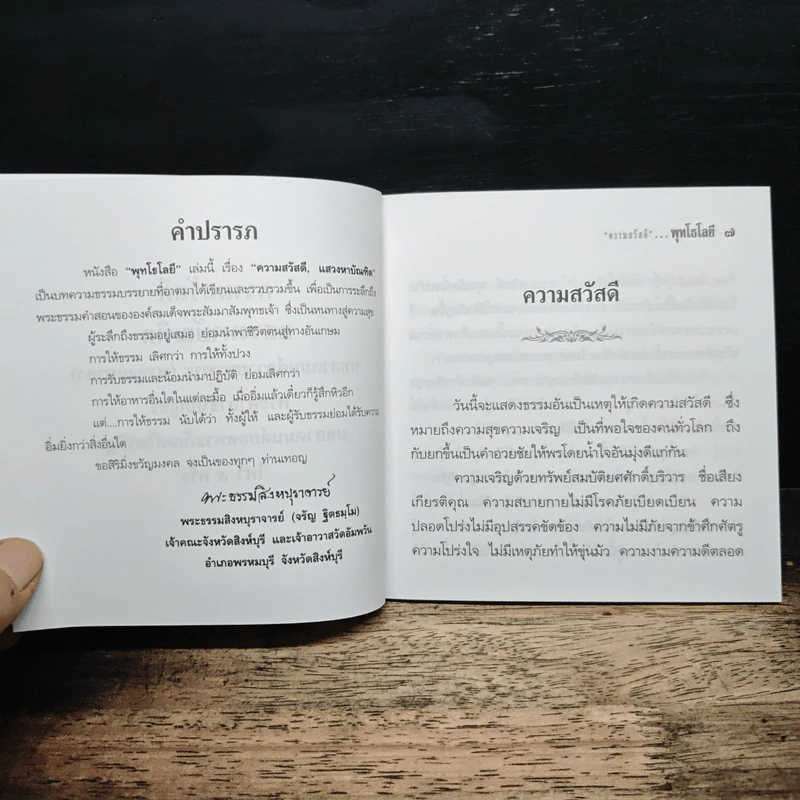 คำปรารภ
หนังสือ "พุทโธโลยี" เล่มนี้ เรื่อง "ความสวัสดี, แสวงหาบัณฑิต"
เป็นบทความธรรมบรรยายที่อาตมาได้เขียนและรวบรวมขึ้น เพื่อเป็นการระลึกถึง
พระธรรมคำสอนขององค์สมเด็จพระสัมมาสัมพุทธเจ้า ซึ่งเป็นหนทางสู่ความสุข
ผู้ระลึกถึงธรรมอยู่เสมอ ย่อมนำพาชีวิตตนสู่ทางอันเกษม
การให้ธรรม เลิศกว่า การให้ทั้งปวง
การรับธรรมและน้อมนำมาปฏิบัติ ย่อมเลิศกว่า
การให้อาหารอื่นใดในแต่ละมื้อ เมื่ออิ่มแล้วเดี๋ยวก็รู้สึกหิวอีก
แต่....การให้ธรรม นับได้ว่า ทั้งผู้ให้ และผู้รับธรรมย่อมได้รับความ
อิ่มยิ่งกว่าสิ่งอื่นใด
ขอสิริมิ่งขวัญมงคล จงเป็นของทุกๆ ท่านเทอญ
พระธรรมสิงหบุราจารย์
พระธรรมสิงหบุราจารย์ (จรัญ ฐิตธมฺโม)
เจ้าคณะจังหวัดสิงห์บุรี และเจ้าอาวาสวัดอัมพวัน
อำเภอพรหมบุรี จังหวัดสิงห์บุรี
"ความสวัสดี"...พุทโธโลยี ๗
ความสวัสดี
วันนี้จะแสดงธรรมอันเป็นเหตุให้เกิดความสวัสดี ซึ่ง
หมายถึงความสุขความเจริญ เป็นที่พอใจของคนทั่วโลก ถึง
กับยกขึ้นเป็นคำอวยชัยให้พรโดยน้ำใจอันมุ่งดีแก่กัน
ความเจริญด้วยทรัพย์สมบัติยศศักดิ์บริวาร ชื่อเสียง
เกียรติคุณ ความสบายกายไม่มีโรคภัยเบียดเบียน ความ
ปลอดโปร่งไม่มีอุปสรรคขัดข้อง ความไม่มีภัยจากข้าศึกศัตรู
ความโปร่งใจ ไม่มีเหตุภัยทำให้ขุ่นมัว ความงามความดีตลอด